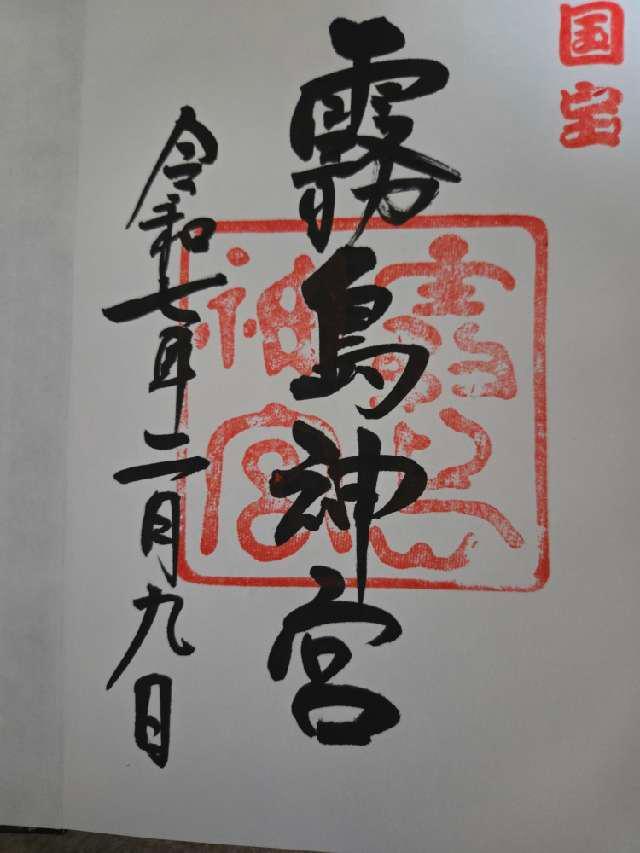 国宝
霧島神宮
霧島神宮
令和七年二月九日